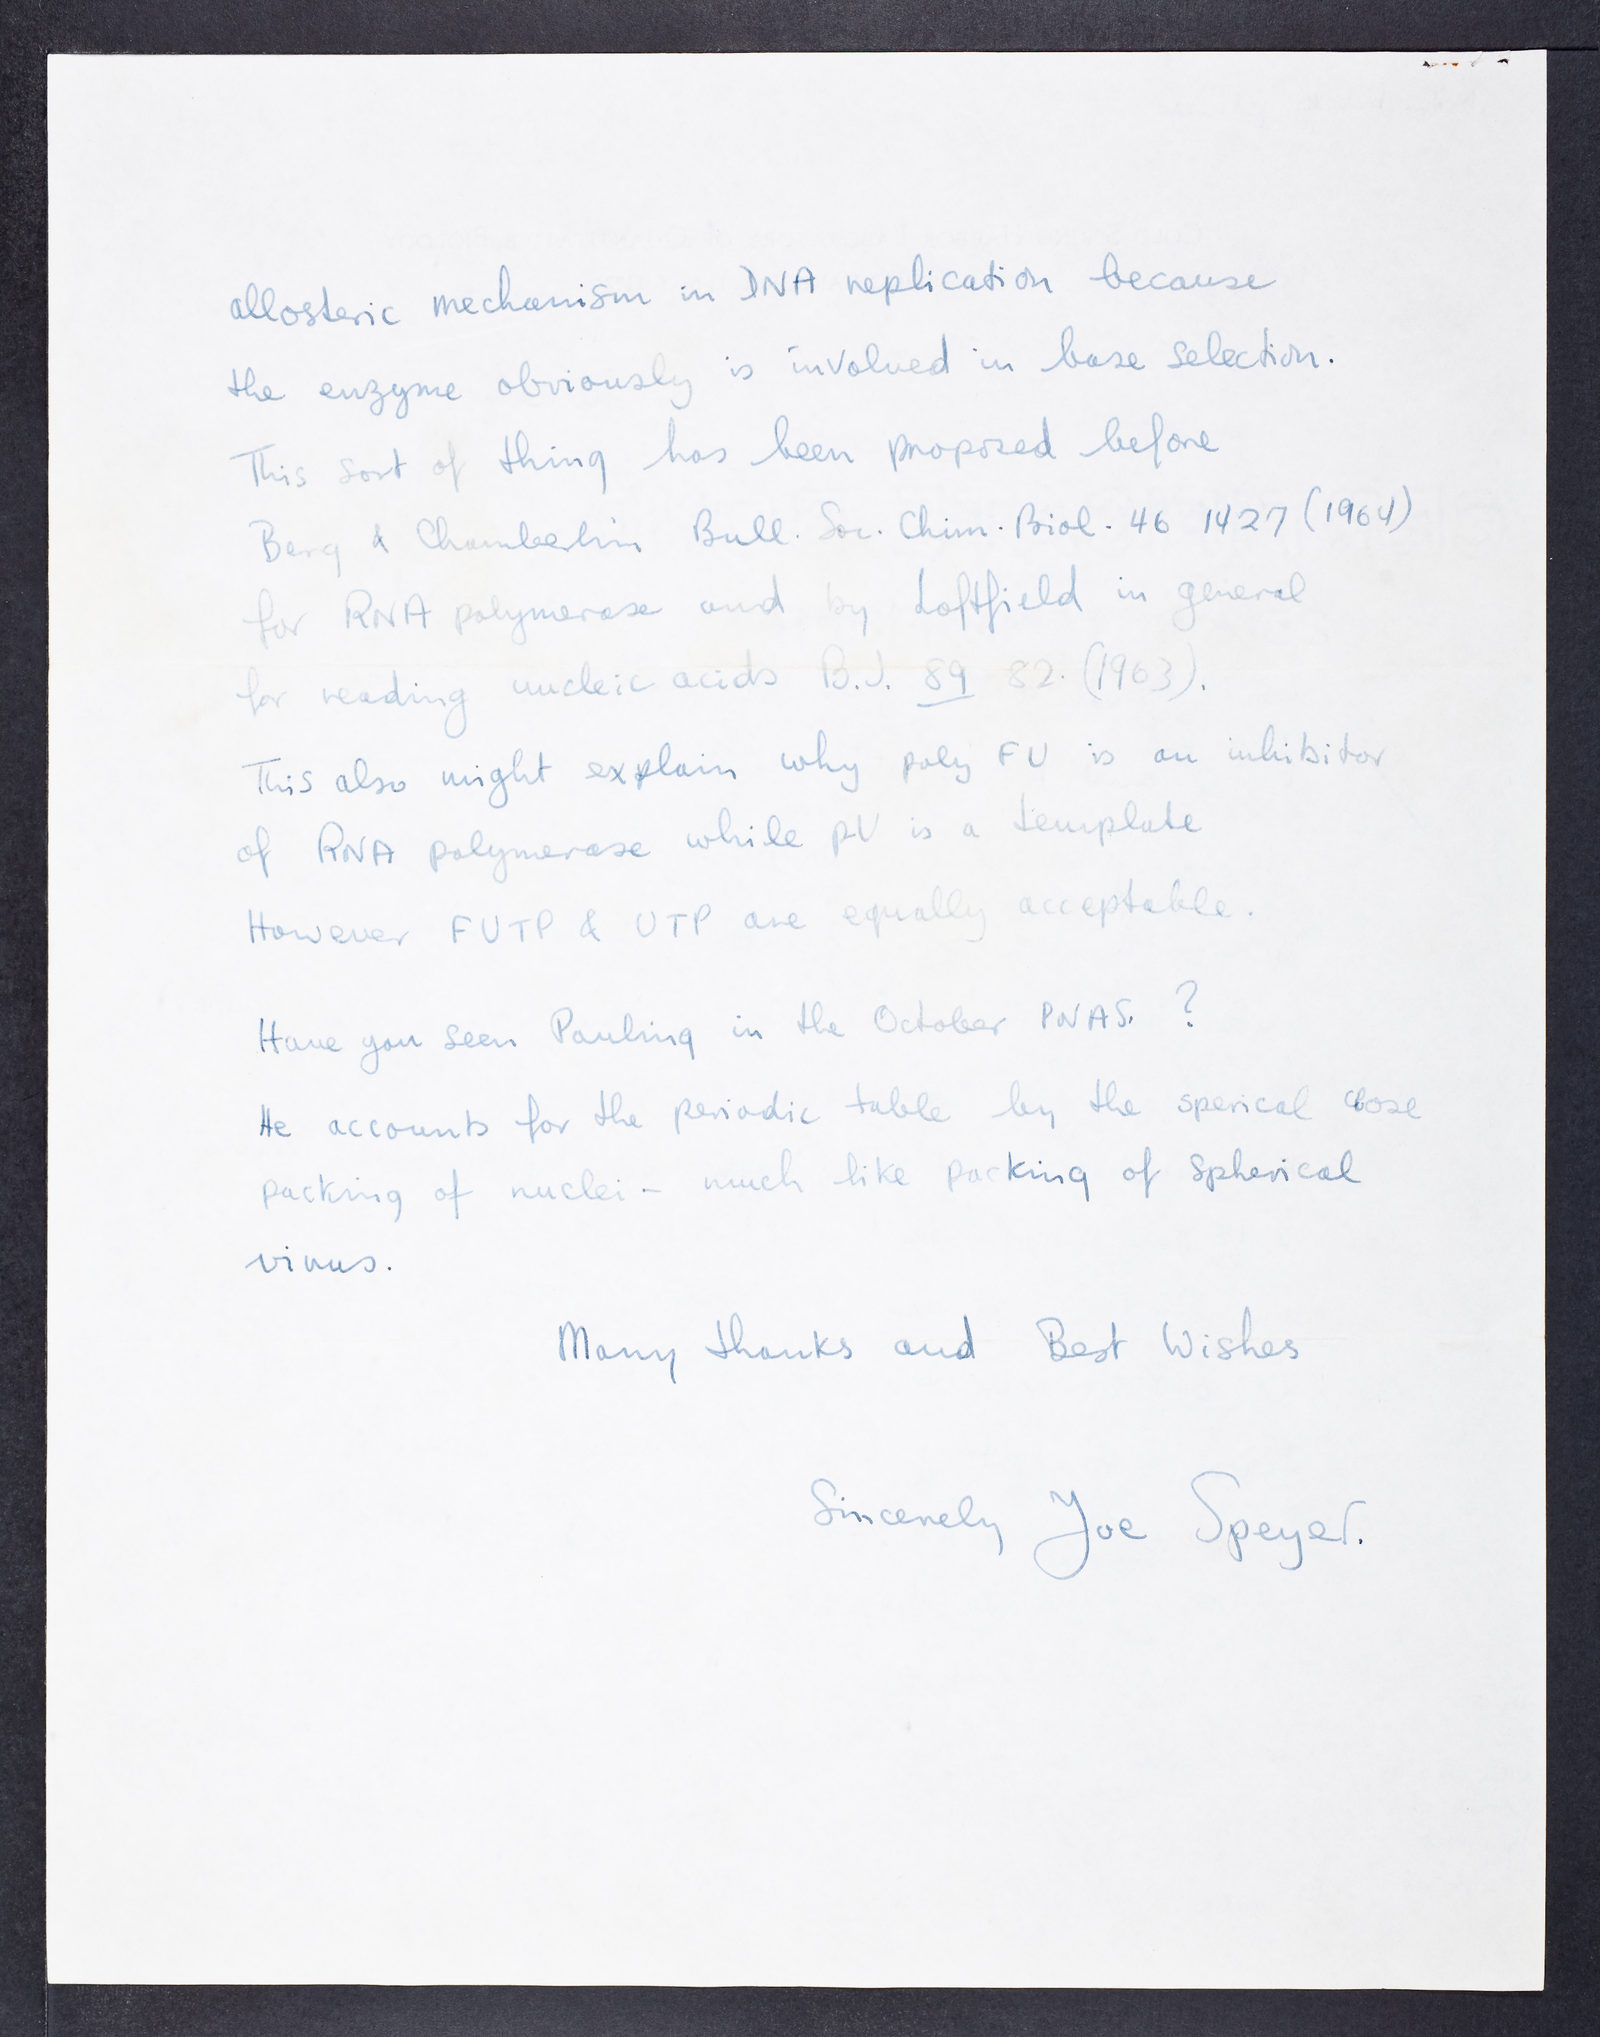 allosteric mechanism in DNA replication because
the enzyme obviously is involved in base selection.
This sort of thing has been proposed before
Berg & Chamberlin Bull. Soc. Chim. Biol. 46 1427 (1964)
for RNA polymerase and by Loftfield in general
for reading nucleic acids B.J. 89 82. (1963).
This also might explain why poly FU is an inhibitor
of RNA polymerase while pU is a template
However FUTP & UTP are equally acceptable.
Have you seen Pauling in the October PNAS. ?
He accounts for the periodic table by the sperical close
packing of nuclei - much like packing of spherical
virus.
Many thanks and Best Wishes
Sincerely Joe Speyer.